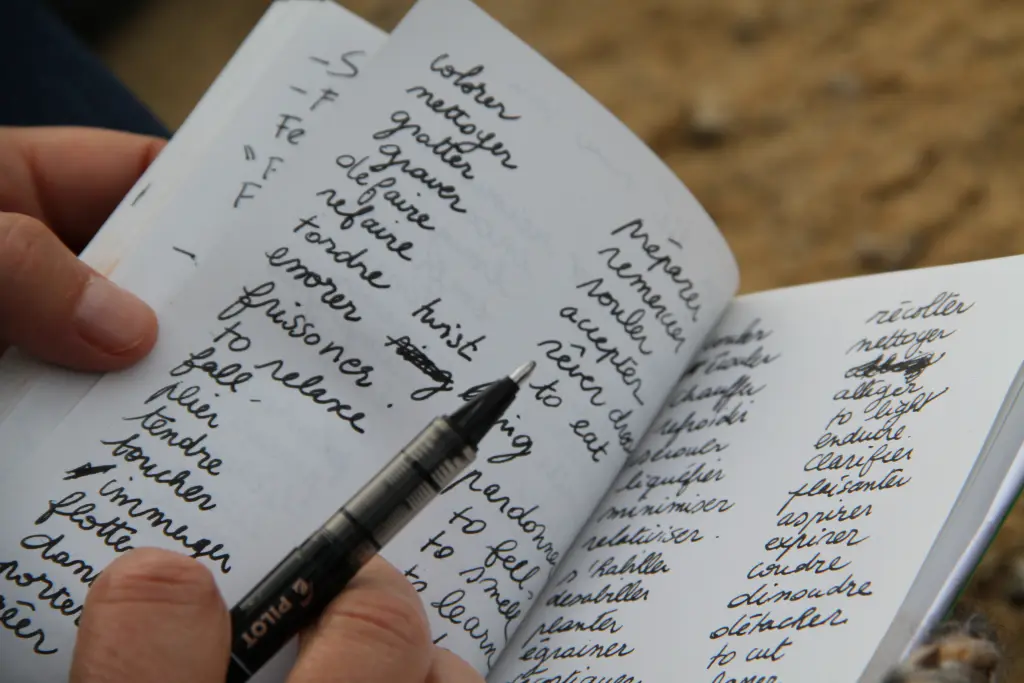 - S
- F
Fe
" F
F
colorer
nettoyer
gratter
graver
défaire
refaire
tordre
essorer
frissoner
to relaxe.
fall.
plier
tendre
toucher
immerger
flotte
dan
porter
réer
twist
préparer
remercier
rouler
accepter
rêver
to eat
pardonne
to fell
to smell
to learn
minimiser
relativiser.
s'habiller
desabiller
planter
egrainer
récolter
nettoyer
alléger
to light
enduire.
clarifier
plaisanter
aspirer
expirer
coudre
dinoudre
détacher
to cut
PILOT